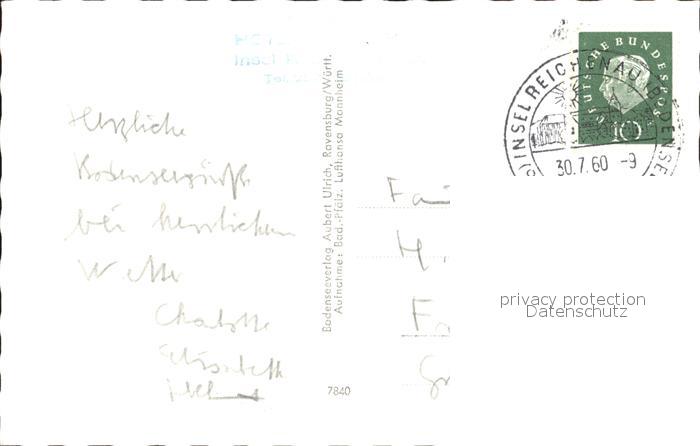 Herzliche
Bodenseegrüße
bei herrlichem
Wetter
Charlotte
Elisabeth
Bodenseeverlag Aubert Ulrich, Ravensburg/Württ.
Aufnahme: Bad.-Pfälz. Lufthansa Mannheim
7840
DEUTSCHE BUNDESPOST
10
INSEL REICHENAU (BODENSEE)
30.7.60 -9
Fa
H.
privacy protection
Datenschutz